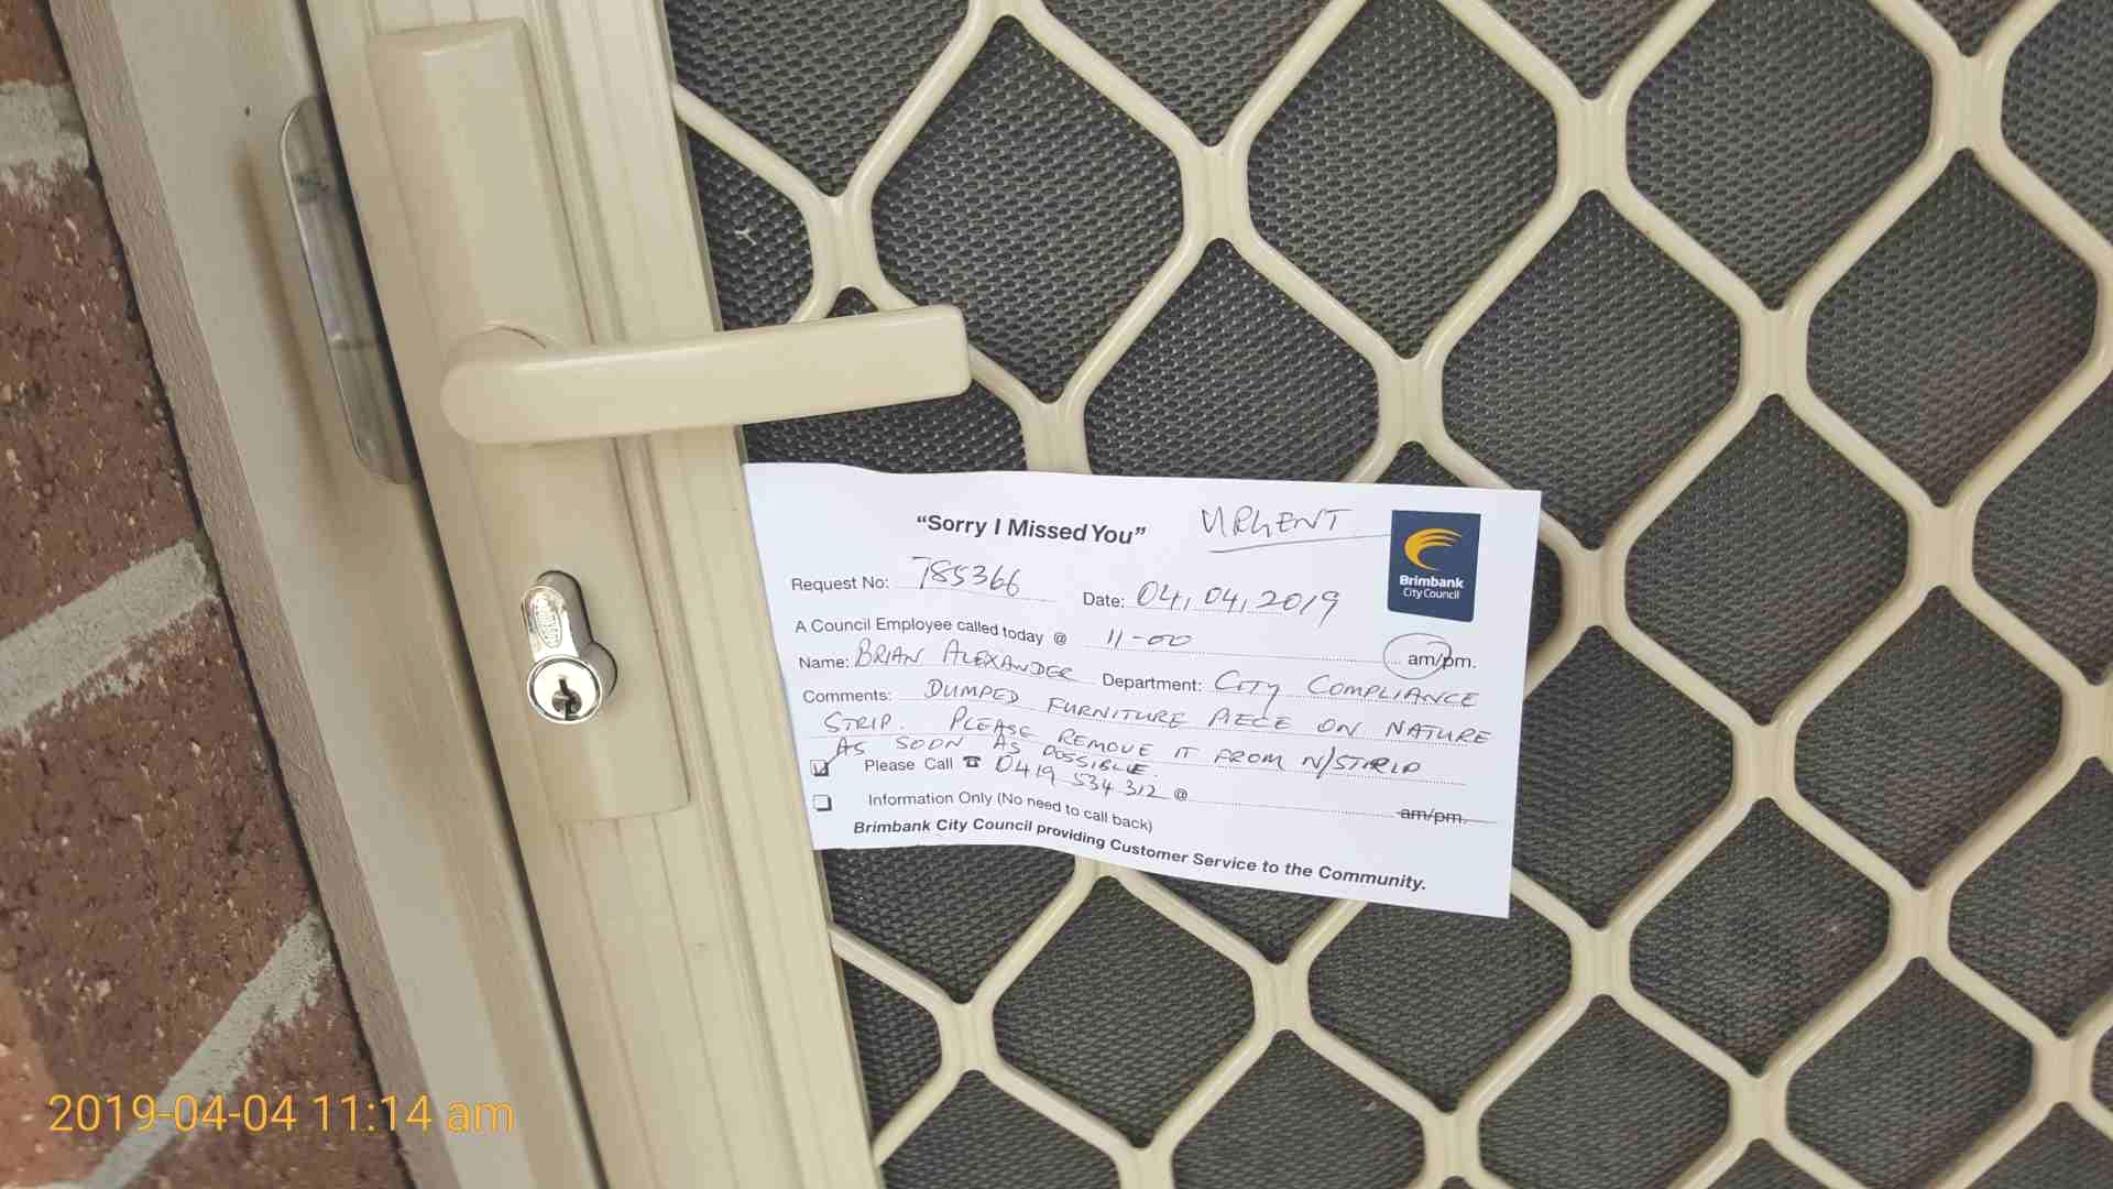 "Sorry I Missed You" URGENT
Brimbank
City Council
Request No: 785366 Date: 04, 04, 2019
A Council Employee called today @ 11-00 am/pm.
Name: BRIAN ALEXANDER Department: CITY COMPLIANCE
Comments: DUMPED FURNITURE PIECE ON NATURE
STRIP. PLEASE REMOVE IT FROM N/STRIP
AS SOON AS POSSIBLE.
Please Call ☎ 0419 534 312 @ am/pm.
Information Only (No need to call back)
Brimbank City Council providing Customer Service to the Community.
2019-04-04 11:14 am